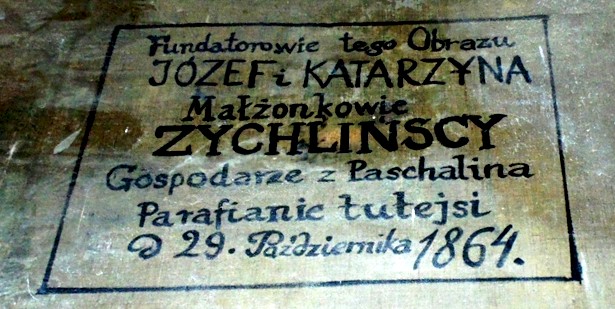 Fundatorowie tego Obrazu
JÓZEF i KATARZYNA
Małżonkowie
ZYCHLIŃSCY
Gospodarze z Paschalina
Parafianie tutejsi
D 29. Października 1864.